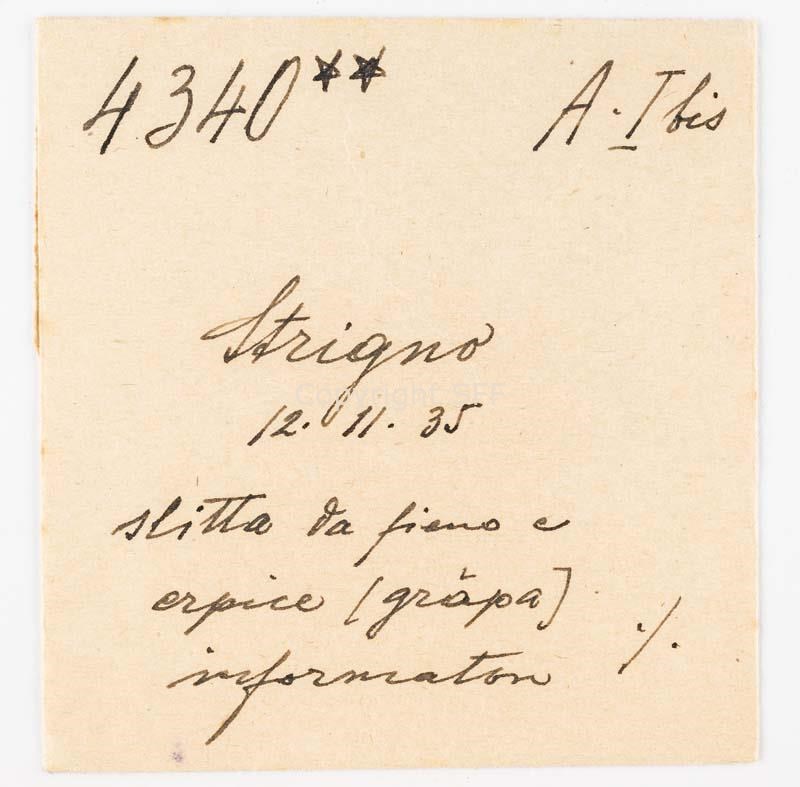 4340** A·I bis
Strigno
12. 11. 35
slitta da fieno e
erpice [gràpa]
informaton ./.